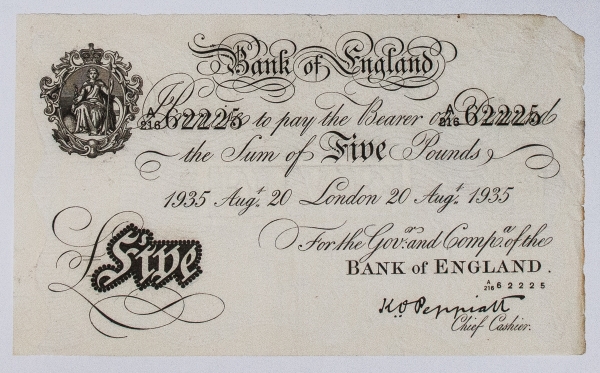 Bank of England
A/216 62225 I Promise to pay the Bearer on Demand A/216 62225
the Sum of Five Pounds
1935 Augt. 20 London 20 Augt. 1935
For the Govr. and Compa. of the
BANK of ENGLAND.
A/216 62225
£Five
K O Peppiatt
Chief Cashier.